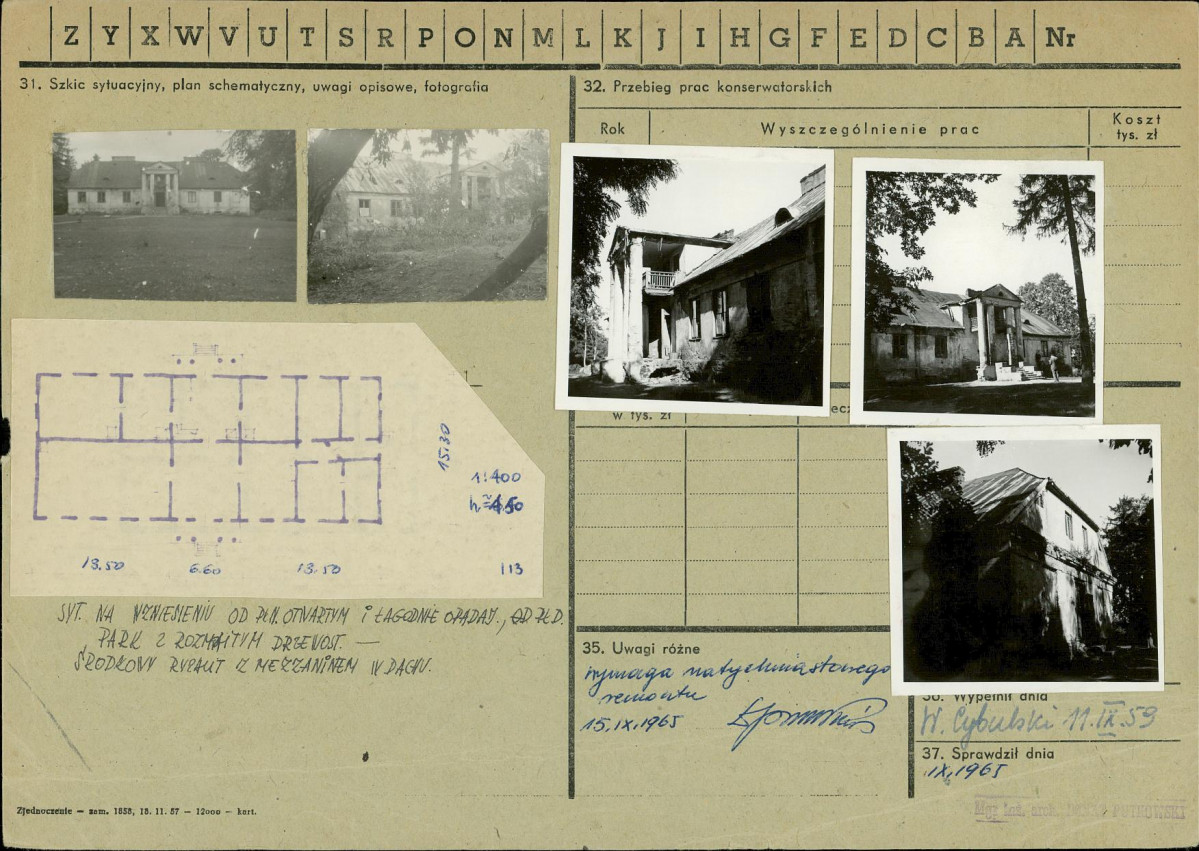 Z Y X W V U T S R P O N M L K J I H G F E D C B A Nr
31. Szkic sytuacyjny, plan schematyczny, uwagi opisowe, fotografia
32. Przebieg prac konserwatorskich
Rok
Wyszczególnienie prac
Koszt
tys. zł
15.30
1:400
13.50
6.60
13.50
113
SYT. NA WZNIESIENIU OD PŁN. OTWARTYM i ŁAGODNIE OPADAJ.,
PARK Z ROZMAITYM DRZEWOST. —
ŚRODKOWY RYZALIT Z MEZZANINEM W DACHU.
w tys. zł
35. Uwagi różne
wymaga natychmiastowego
remontu
15.IX.1965
36. Wypełnił dnia
W. Cybulski 11.IX.59
37. Sprawdził dnia
IX.1965
Mgr inż. arch.
Zjednoczenie — zam. 1858, 18. 11. 57 — 12000 — kart.